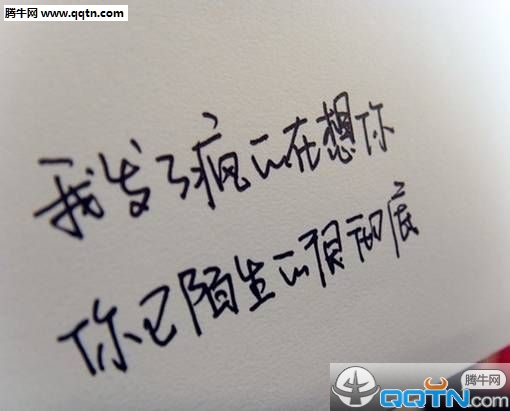 腾牛网
www.qqtn.com
我发了疯的在想你
你已陌生的很彻底
腾牛网
QQTN.COM